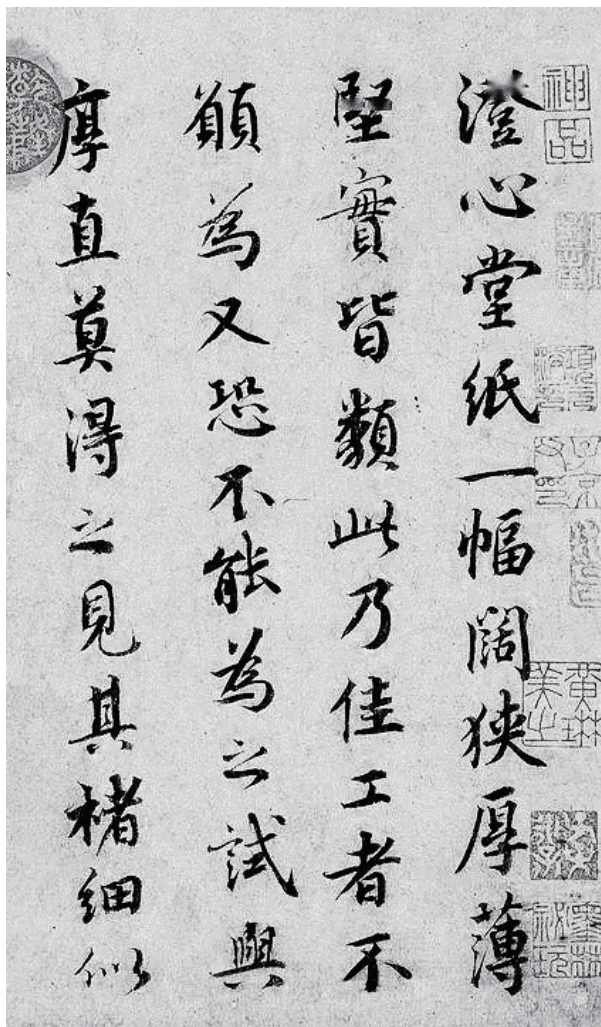 神品
子京父印
黃琳美之
澄心堂紙一幅闊狹厚薄
堅實皆類此乃佳工者不
願為又恐不能為之試與
厚直莫得之見其楮細似